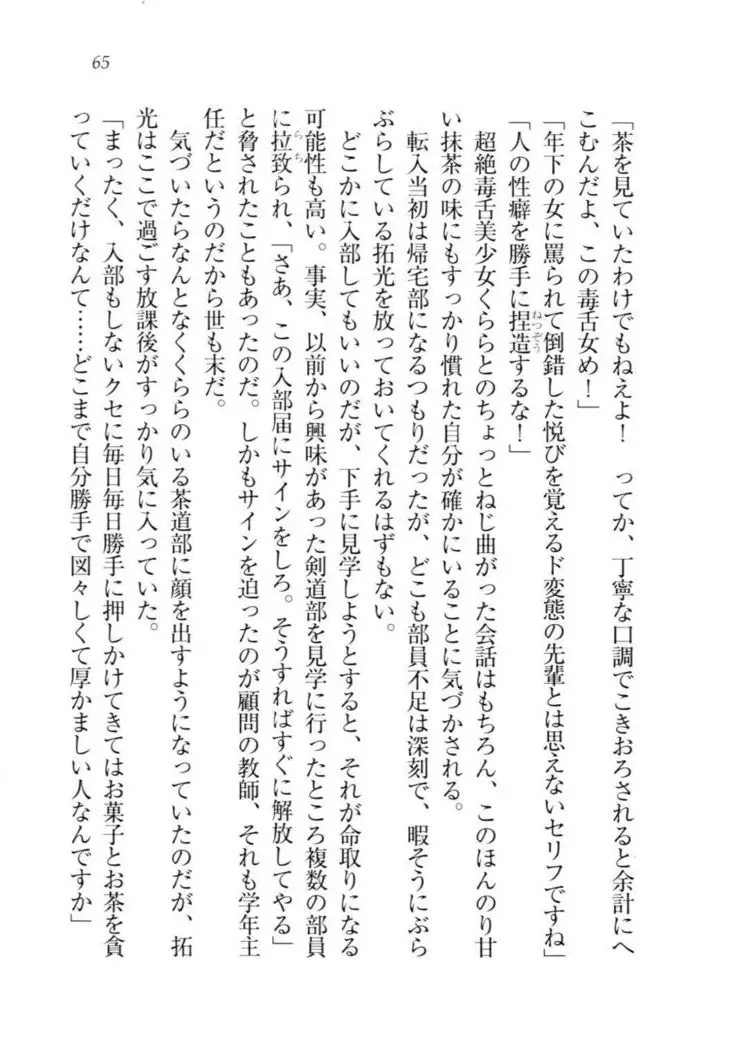 65
「茶を見ていたわけでもねえよ！　ってか、丁寧な口調でこきおろされると余計にへ
こむんだよ、この毒舌女め！」
「年下の女に罵られて倒錯した悦びを覚えるド変態の先輩とは思えないセリフですね」
「人の性癖を勝手に捏造するな！」
ねつぞう
　超絶毒舌美少女くららとのちょっとねじ曲がった会話はもちろん、このほんのり甘
い抹茶の味にもすっかり慣れた自分が確かにいることに気づかされる。
　転入当初は帰宅部になるつもりだったが、どこも部員不足は深刻で、暇そうにぶら
ぶらしている拓光を放っておいてくれるはずもない。
　どこかに入部してもいいのだが、下手に見学しようとすると、それが命取りになる
可能性も高い。事実、以前から興味があった剣道部を見学に行ったところ複数の部員
に拉致られ、「さあ、この入部届にサインをしろ。そうすればすぐに解放してやる」
らち
と脅されたこともあったのだ。しかもサインを迫ったのが顧問の教師、それも学年主
任だというのだから世も末だ。
　気づいたらなんとなくくららのいる茶道部に顔を出すようになっていたのだが、拓
光はここで過ごす放課後がすっかり気に入っていた。
「まったく、入部もしないクセに毎日毎日勝手に押しかけてきてはお菓子とお茶を貪
っていくだけなんて……どこまで自分勝手で図々しくて厚かましい人なんですか」